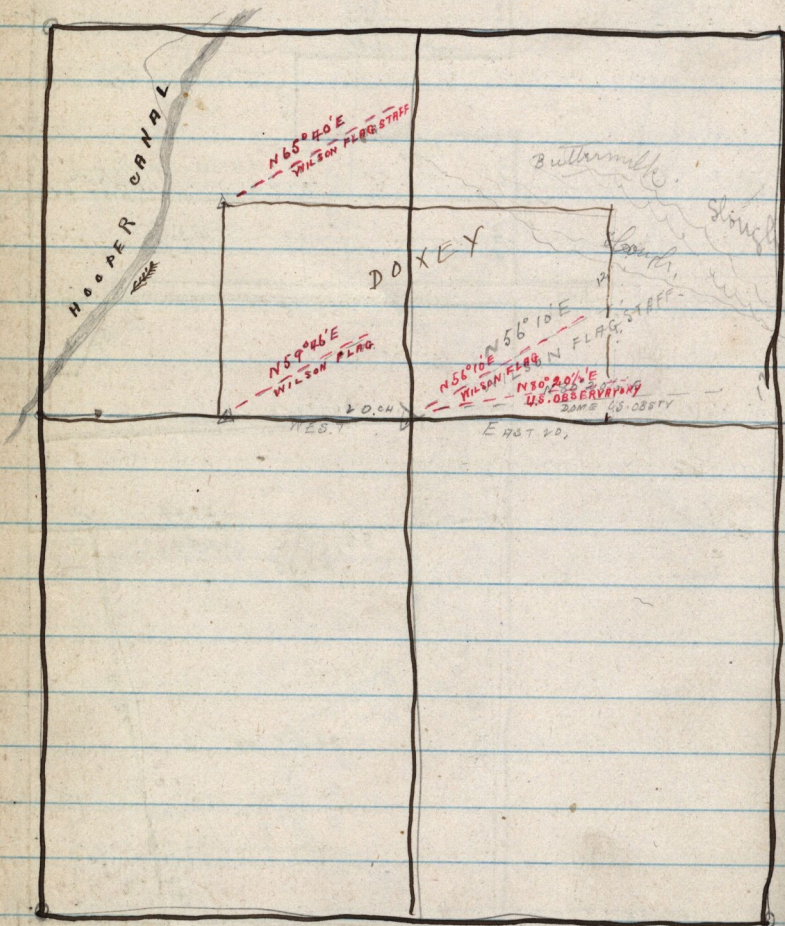 HOOPER CANAL
N65°40'E
WILSON FLAG STAFF
Buttermilk
Slough
Slough
DOXEY
12
N56°10'E
WILSON FLAG STAFF
N59°46'E
WILSON FLAG
N56°10'E
WILSON FLAG
N80°20½'E
U.S. OBSERVATORY
DOME U.S. OBSTY
20.CH
WEST
EAST 20.